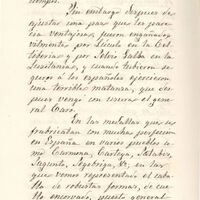 tiempo.
Sin embargo despues de
ajustar una paz que les parecia
ventajosa, fueron engañados
vilmente por Lúculo en la Cel-
tiberia y por Sulpicio Galba en la
Lusitania, y cuando tubieron se-
guros á los españoles ejercieron
una terrible matanza, que des-
pues vengó con usura el gene-
ral Caro.
En las medallas que se
fabricaban con mucha perfeccion
en España en varios pueblos co-
mo Carmona, Carteya,
Sagunto, Segobriga, &c, en las
que vemos representado el caba-
llo de robustas formas, de cue-
llo encorvado, puesto general-